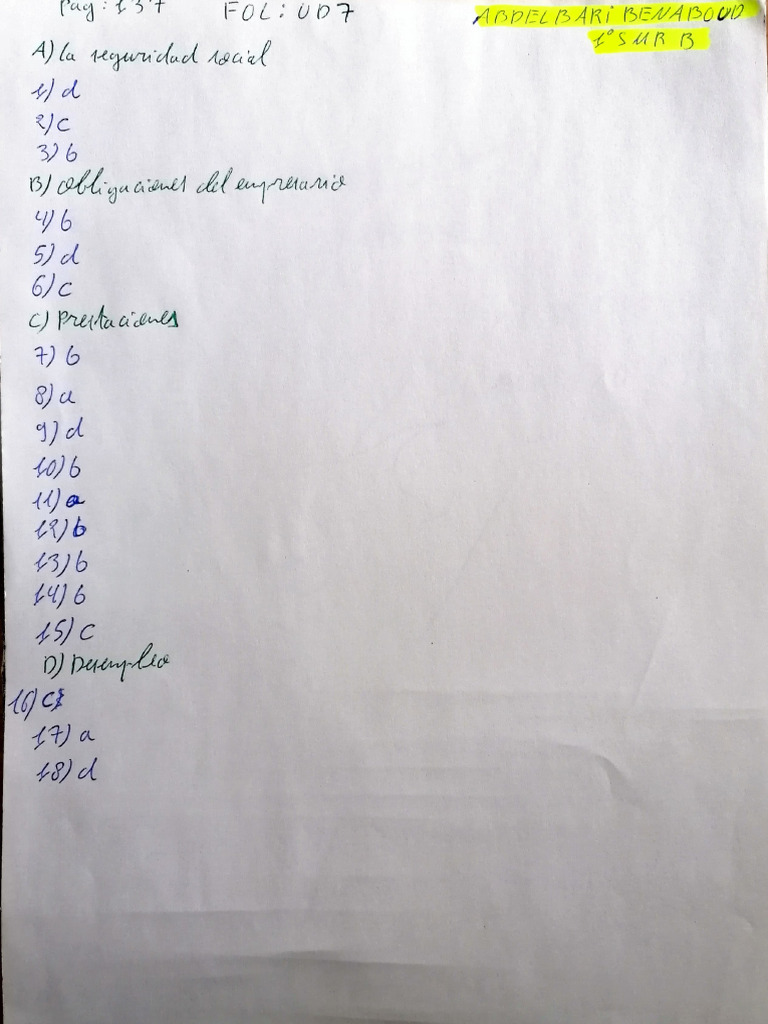 Pag: 137 FOL: UD7 ABDELBARI BENABOUD
1º SMR B
A) la seguridad social
1) d
2) c
3) b
B) obligaciones del empresario
4) b
5) d
6) c
C) Prestaciones
7) b
8) a
9) d
10) b
11) a
12) b
13) b
14) b
15) c
D) Desempleo
16) c
17) a
18) d